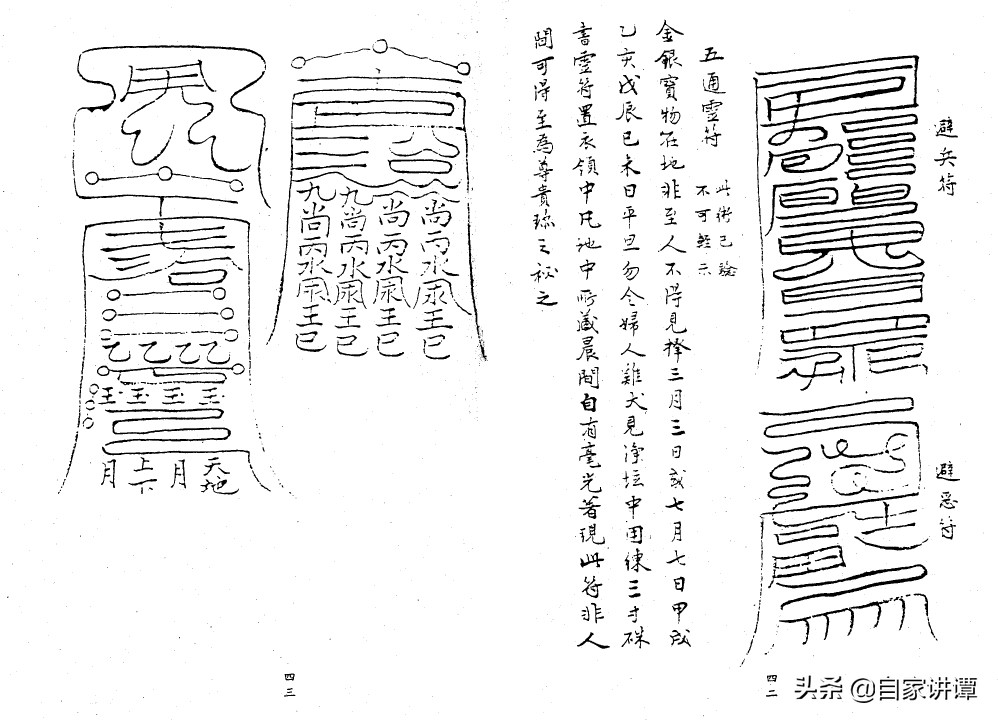 避兵符
避惡符
五通靈符
此術已驗
不可輕示
金銀寶物在地非至人不得見擇三月三日或七月七日甲戌
乙亥戊辰巳未日平旦勿令婦人雞犬見淨壇中用練三寸硃
書靈符置衣領中凡地中所藏晨間自有毫光著現此符非人
間可得至為尊貴珎之秘之
四二
九尚丙水
王巳
九尚丙水
王巳
尚丙水
王巳
尚丙水
王巳
乙乙乙乙
玉玉玉王
天地
月
上下
月
四三
头条@自家讲谭